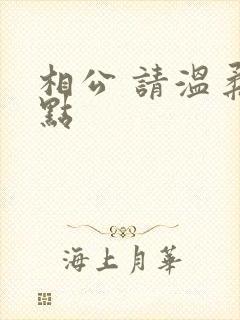 相公 請溫柔
點
海上月華